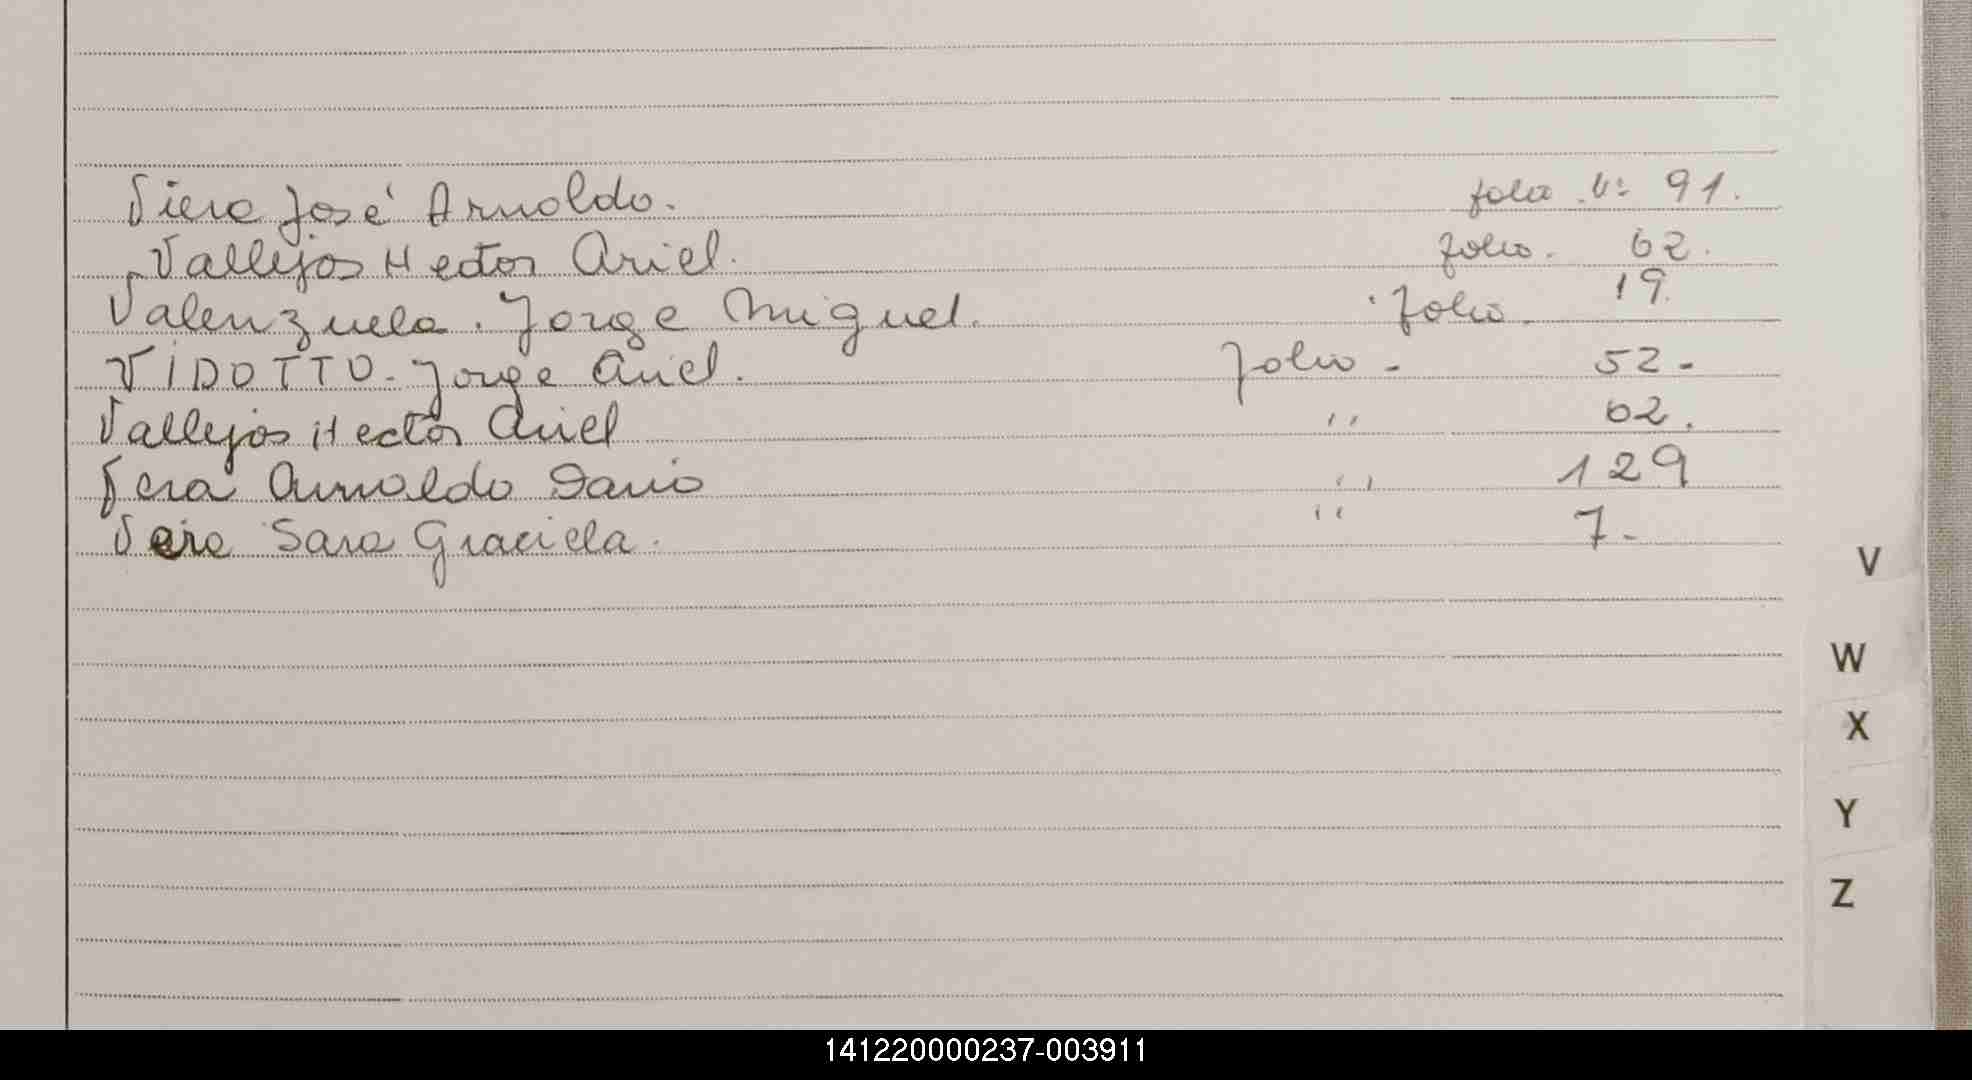 Viera José Arnoldo. folio Nº 91.
Vallejos Hector Ariel. folio. 62.
Valenzuela. Jorge Miguel. folio. 19.
VIDOTTO. Jorge Ariel. folio - 52-
Vallejos Hector Ariel " 62.
Vera Arnoldo Dario " 129
Vera Sara Graciela. " 7-
V
W
X
Y
Z
141220000237-003911